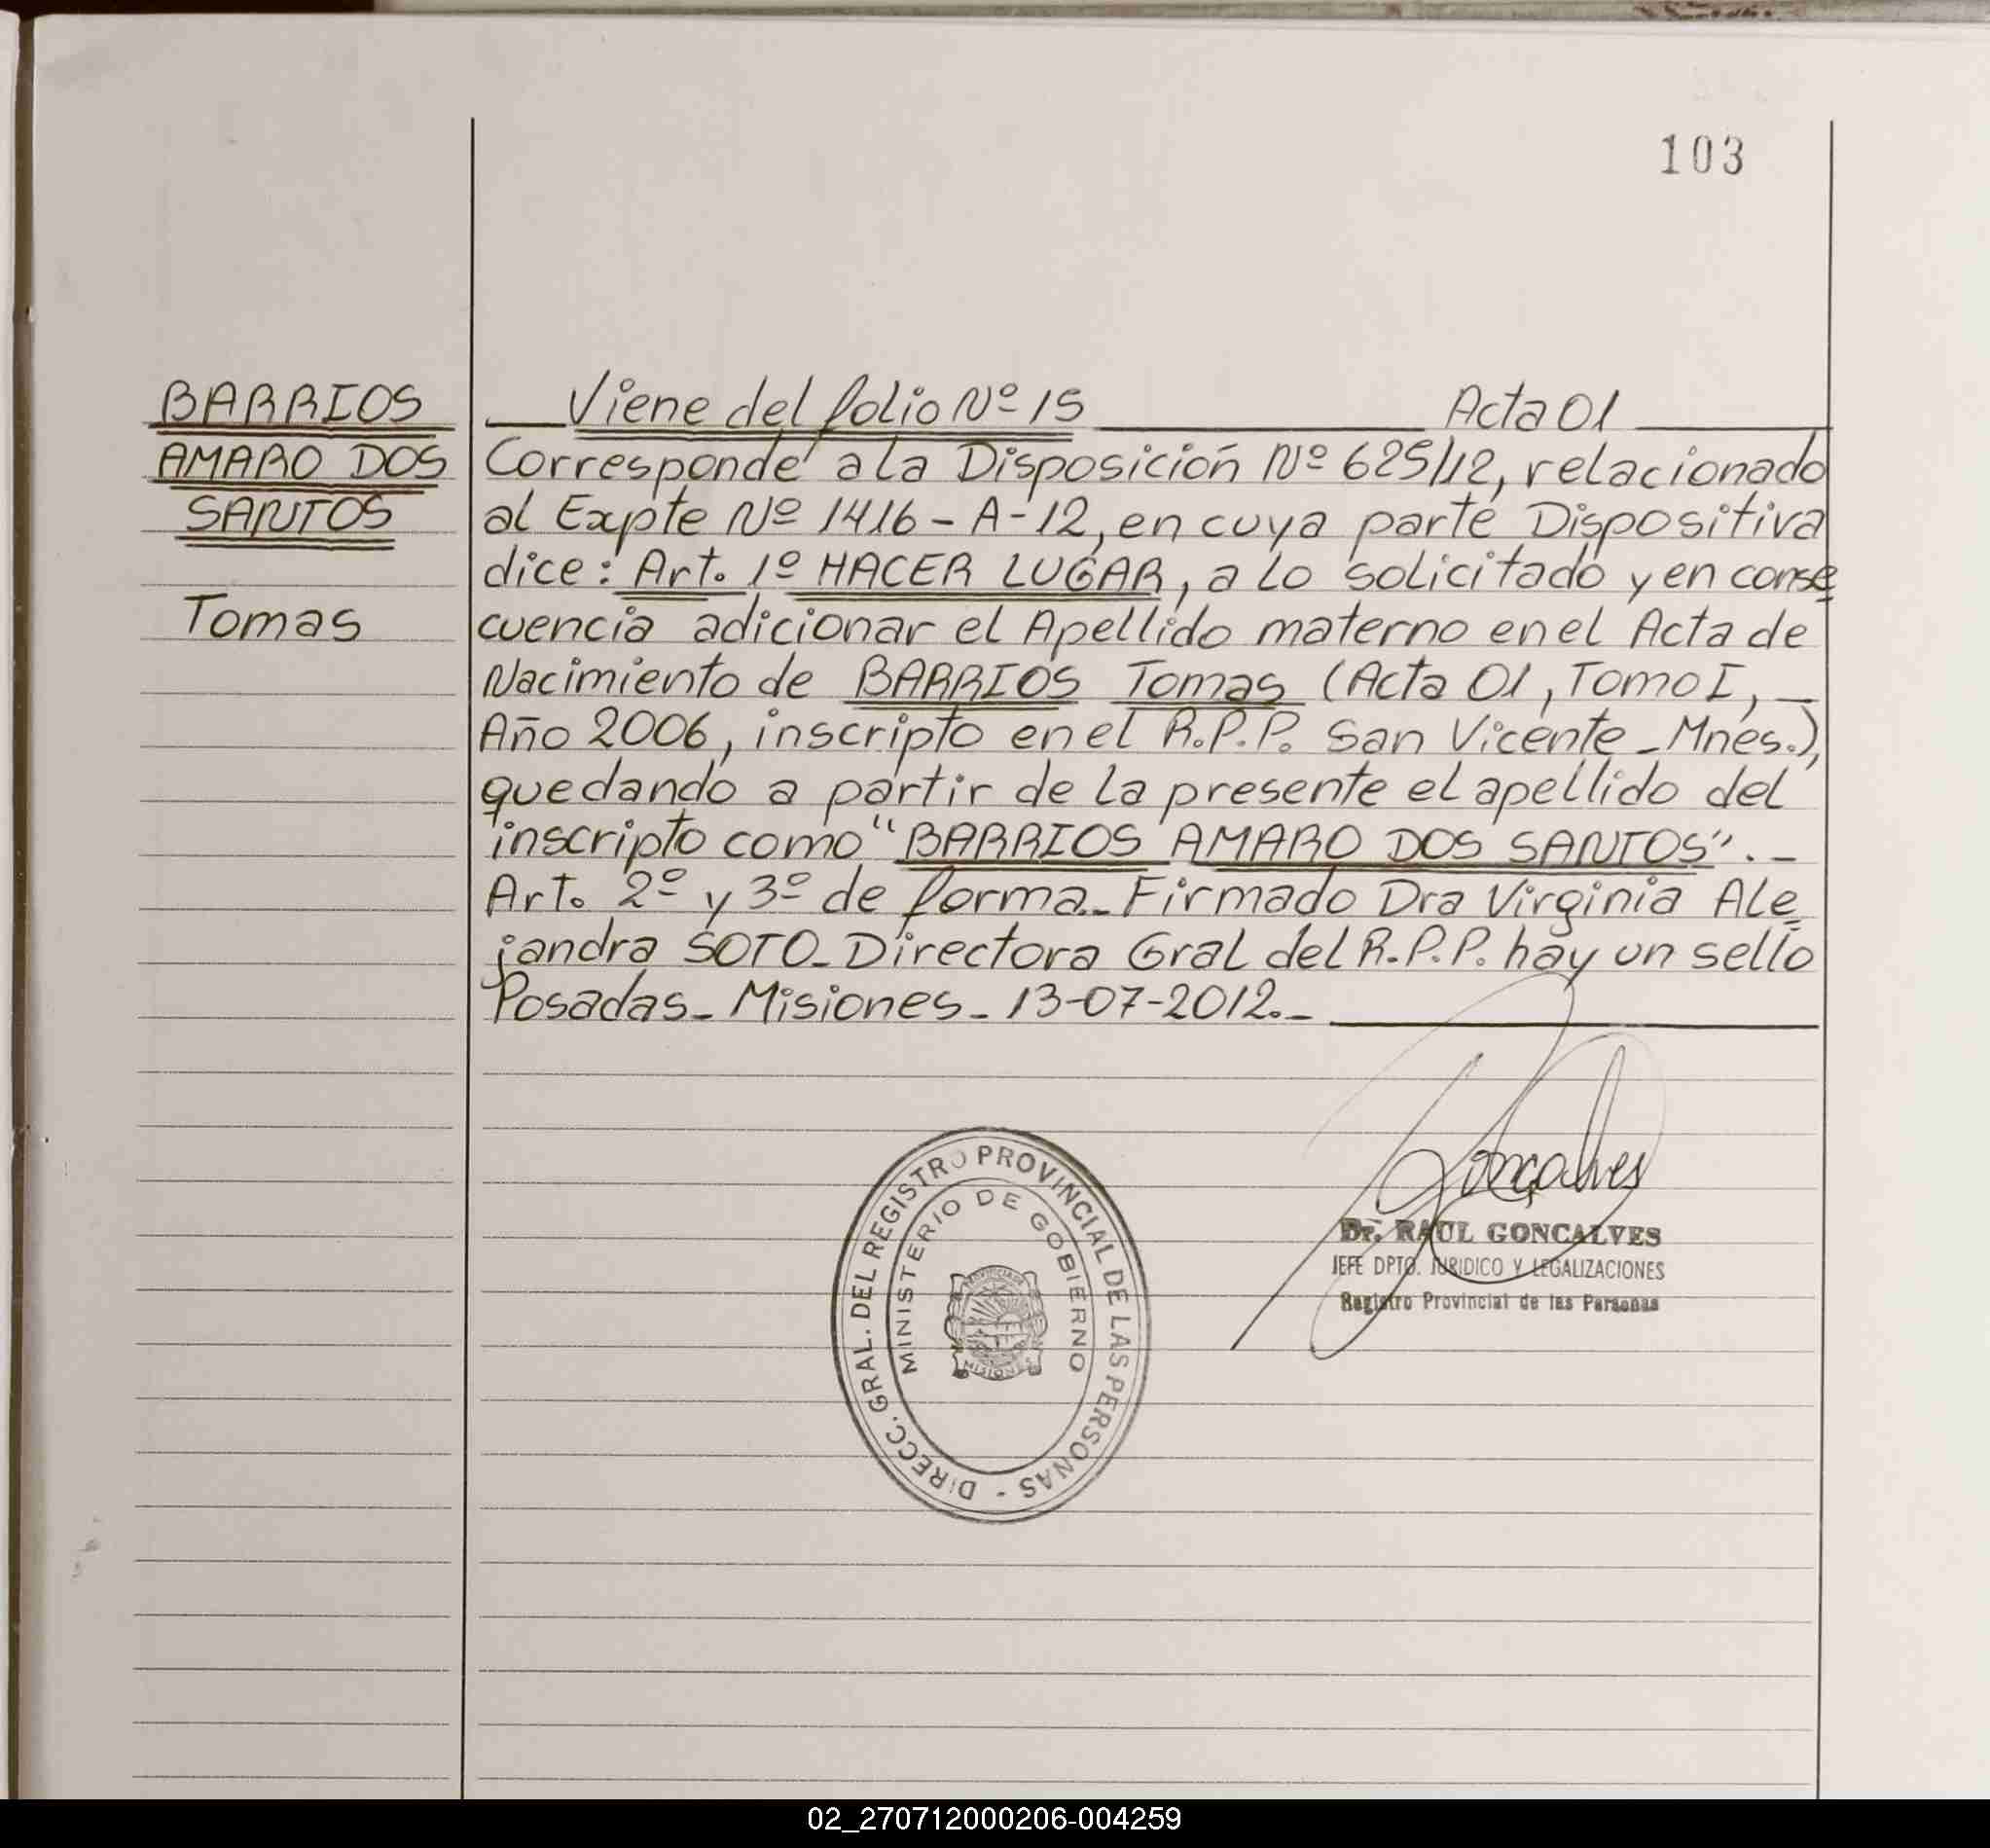 103
BARRIOS
AMARO DOS
SANTOS
Tomas
Viene del folio Nº 15 Acta 01
Corresponde a la Disposición Nº 625/12, relacionado
al Expte Nº 1416 - A - 12, en cuya parte Dispositiva
dice: Art. 1º HACER LUGAR, a lo solicitado y en conse
cuencia adicionar el Apellido materno en el Acta de
Nacimiento de BARRIOS Tomas (Acta 01, Tomo I, _
Año 2006, inscripto en el R.P.P. San Vicente - Mnes.),
quedando a partir de la presente el apellido del
inscripto como "BARRIOS AMARO DOS SANTOS". -
Art. 2º y 3º de forma - Firmado Dra Virginia Ale
jandra SOTO - Directora Gral del R.P.P. hay un sello
Posadas - Misiones - 13-07-2012. -
Goncalves
Dr. RAUL GONCALVES
JEFE DPTO. JURIDICO Y LEGALIZACIONES
Registro Provincial de las Personas
DIRECC. GRAL. DEL REGISTRO PROVINCIAL DE LAS PERSONAS -
MINISTERIO DE GOBIERNO
PROVINCIA DE
MISIONES
02_270712000206-004259